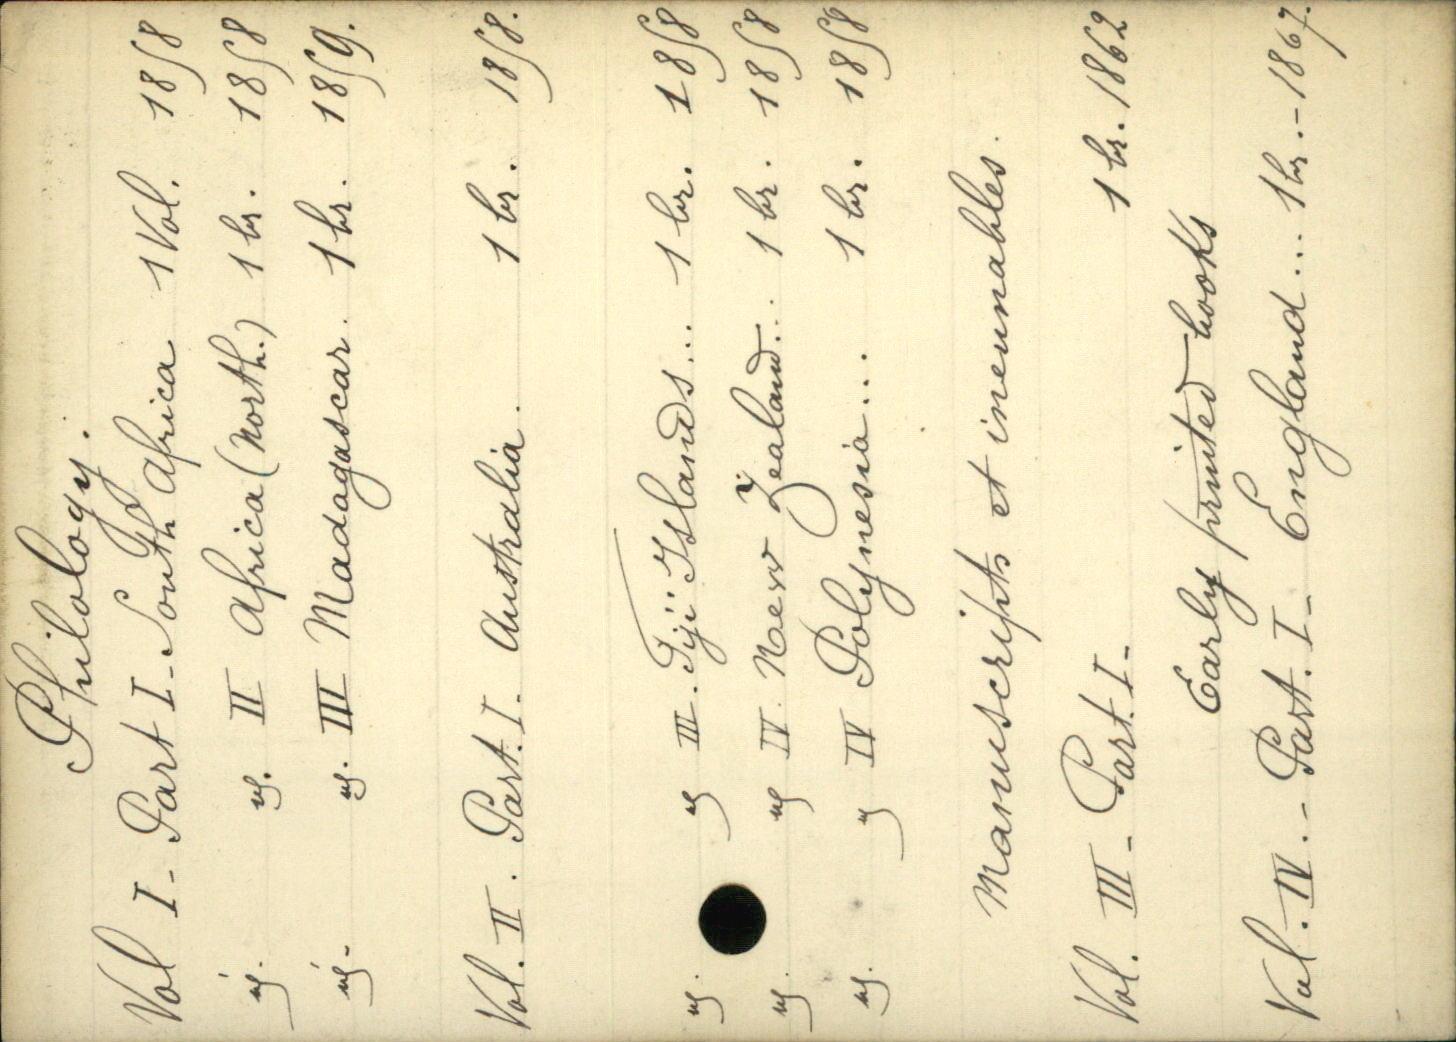 Philology.
Vol I - Part I - South Africa 1 Vol. 1858
id. id. II Africa (North.) 1 br. 1858
id. - id. III Madagascar. 1 br. 1859.
Vol. II. Part. I. Australia. 1 br. 1858.
id. id III. Fiji Islands... 1 br. 1858
id. id IV. New Zealand... 1 br. 1858
id. id IV Polynesia... 1 br. 1858
Manuscripts et incunables.
Vol. III - Part. I - 1 br. 1862
Early printed books
Vol. IV. - Part. I - England... 1 br. - 1867.